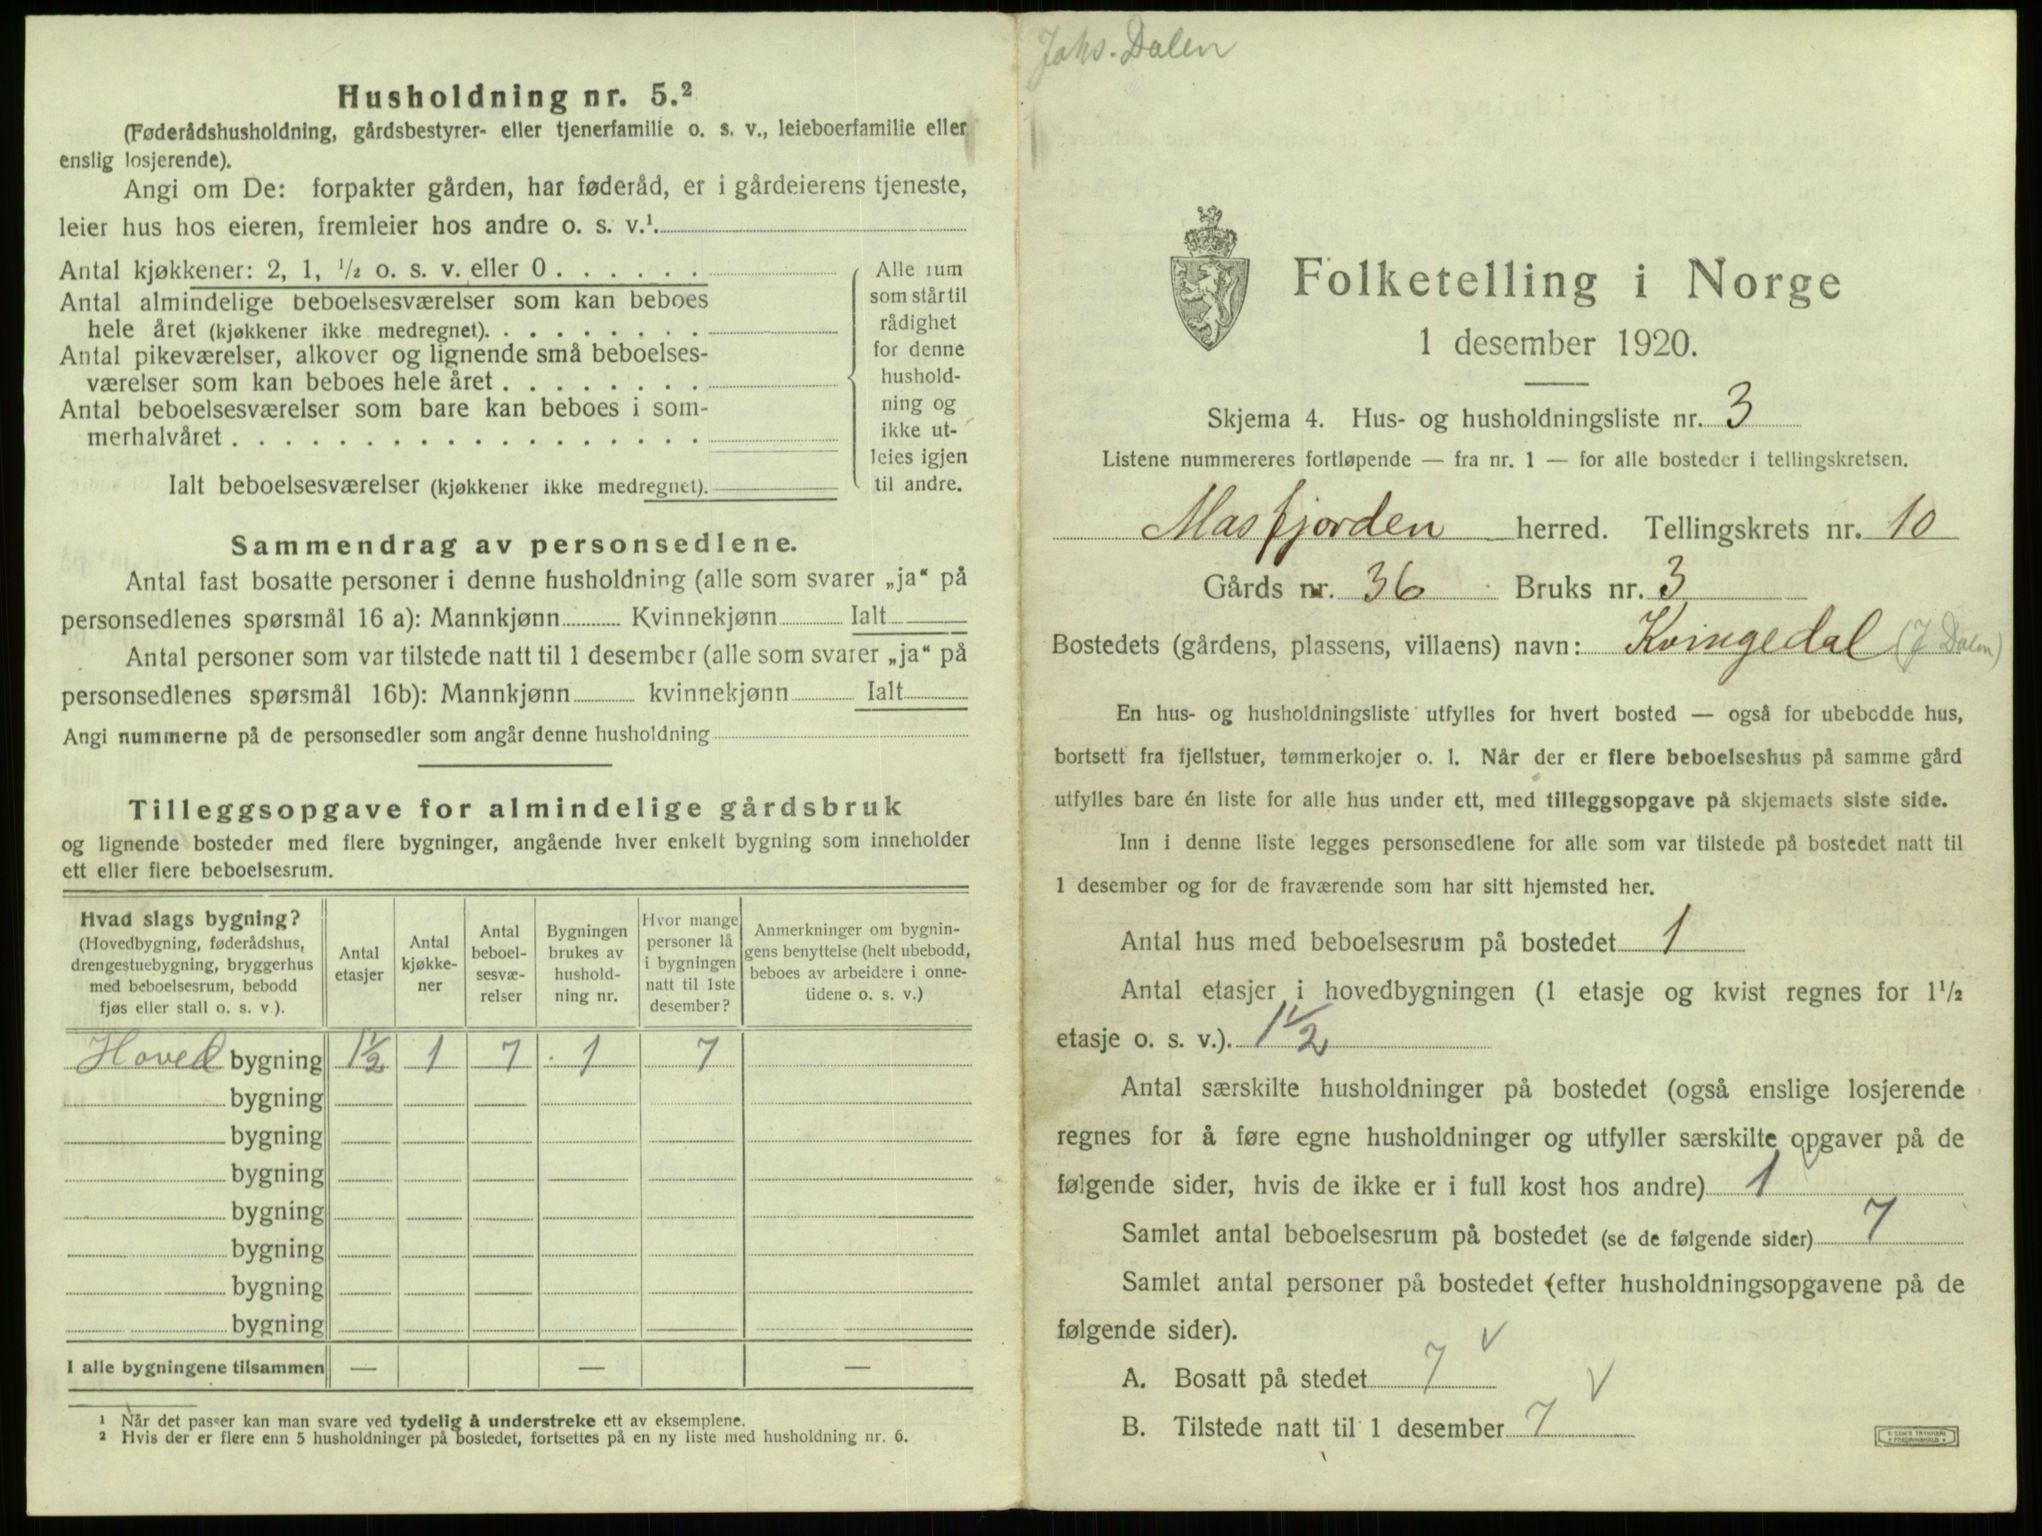 Husholdning nr. 5.²
(Føderådshusholdning, gårdsbestyrer- eller tjenerfamilie o. s. v., leieboerfamilie eller
enslig losjerende).
Angi om De: forpakter gården, har føderåd, er i gårdeierens tjeneste,
leier hus hos eieren, fremleier hos andre o. s. v.¹
Antal kjøkkener: 2, 1, ½ o. s. v. eller 0 . . . . . .
Antal almindelige beboelsesværelser som kan beboes
hele året (kjøkkener ikke medregnet). . . . . . . . .
Antal pikeværelser, alkover og lignende små beboelses-
værelser som kan beboes hele året . . . . . . . .
Antal beboelsesværelser som bare kan beboes i som-
merhalvåret . . . . . . . . . . . . . . . . . .
Ialt beboelsesværelser (kjøkkener ikke medregnet).
Alle rum
som står til
rådighet
for denne
hushold-
ning og
ikke ut-
leies igjen
til andre.
Sammendrag av personsedlene.
Antal fast bosatte personer i denne husholdning (alle som svarer „ja“ på
personsedlenes spørsmål 16 a): Mannkjønn Kvinnekjønn Ialt
Antal personer som var tilstede natt til 1 desember (alle som svarer „ja“ på
personsedlenes spørsmål 16b): Mannkjønn kvinnekjønn Ialt
Angi nummerne på de personsedler som angår denne husholdning
Tilleggsopgave for almindelige gårdsbruk
og lignende bosteder med flere bygninger, angående hver enkelt bygning som inneholder
ett eller flere beboelsesrum.
Hvad slags bygning?
(Hovedbygning, føderådshus,
drengestuebygning, bryggerhus
med beboelsesrum, bebodd
fjøs eller stall o. s. v.).
Antal
etasjer
Antal
kjøkke-
ner
Antal
beboel-
sesvæ-
relser
Bygningen
brukes av
hushold-
ning nr.
Hvor mange
personer lå
i bygningen
natt til 1ste
desember?
Anmerkninger om bygnin-
gens benyttelse (helt ubebodd,
beboes av arbeidere i onne-
tidene o. s. v.)
Hoved bygning 1½ 1 7 1 7
bygning
bygning
bygning
bygning
bygning
bygning
bygning
I alle bygningene tilsammen — — —
¹ Når det passer kan man svare ved tydelig å understreke ett av eksemplene.
² Hvis der er flere enn 5 husholdninger på bostedet, fortsettes på en ny liste med husholdning nr. 6.
Johs. Dalen
Folketelling i Norge
1 desember 1920.
Skjema 4. Hus- og husholdningsliste nr. 3
Listene nummereres fortløpende — fra nr. 1 — for alle bosteder i tellingskretsen.
Masfjorden herred. Tellingskrets nr. 10
Gårds nr. 36 Bruks nr. 3
Bostedets (gårdens, plassens, villaens) navn: Kvingedal (J Dalen)
En hus- og husholdningsliste utfylles for hvert bosted — også for ubebodde hus,
bortsett fra fjellstuer, tømmerkojer o. l. Når der er flere beboelseshus på samme gård
utfylles bare én liste for alle hus under ett, med tilleggsopgave på skjemaets siste side.
Inn i denne liste legges personsedlene for alle som var tilstede på bostedet natt til
1 desember og for de fraværende som har sitt hjemsted her.
Antal hus med beboelsesrum på bostedet 1
Antal etasjer i hovedbygningen (1 etasje og kvist regnes for 1½
etasje o. s. v.). 1½
Antal særskilte husholdninger på bostedet (også enslige losjerende
regnes for å føre egne husholdninger og utfyller særskilte opgaver på de
følgende sider, hvis de ikke er i full kost hos andre) 1 v
Samlet antal beboelsesrum på bostedet (se de følgende sider) 7
Samlet antal personer på bostedet (efter husholdningsopgavene på de
følgende sider).
A. Bosatt på stedet 7 v
B. Tilstede natt til 1 desember 7 v